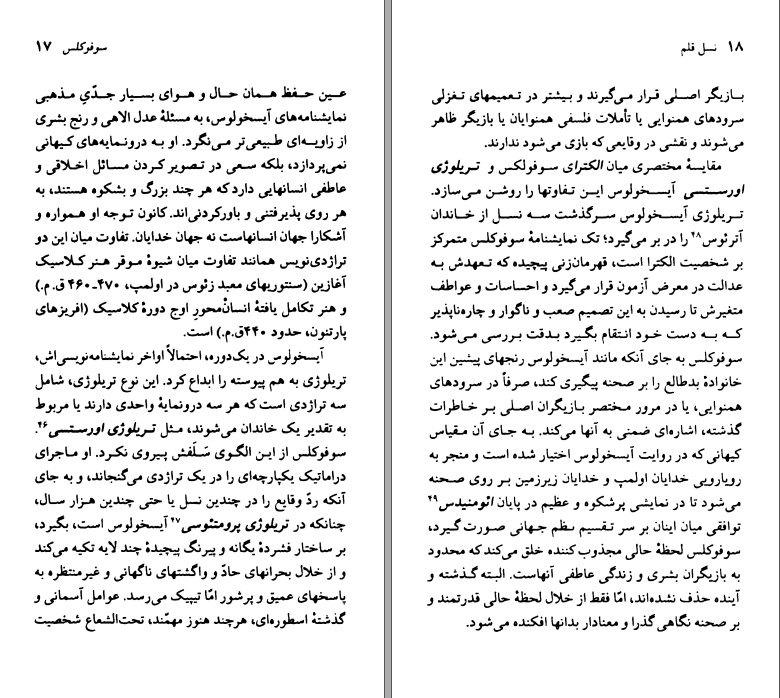 سوفوکلس ۱۷
عـین حـفظ هـمان حال و هـوای بسـیار جـدّیِ مـذهبی
نمایشنامه‌های آیسخولوس، به مسئلهٔ عدل الاهی و رنج بشری
از زاویـه‌ای طـبیعی‌تر مـی‌نگرد. او بـه درونـمایه‌های کیهانی
نمی‌پردازد، بلکه سـعی در تصویر کـردن مسـائل اخـلاقی و
عاطفی انسانهایی دارد که هر چند بزرگ و بشکوه هستند، به
هر روی پذیرفتنی و باورکردنی‌اند. کانون توجه او همواره و
آشکارا جهان انسانهاست نه جهان خدایان. تفاوت میان این دو
تراژدی‌نویس همانند تفاوت میان شیوهٔ مـوقر هـنر کـلاسیک
آغازین (سنتوریهای معبد زئوس در اولمپ، ۴۷۰ـ۴۶۰ ق.م.)
و هنر تکامل یافتهٔ انسانْ‌محورِ اوج دورهٔ کلاسیک (افریزهای
پارتنون، حدود ۴۴۰ق.م.) است.
آیسخولوس در یک‌دوره، احتمالاً اواخر نمایشنامه‌نویسی‌اش،
تریلوژی به هم پیوسته را ابداع کرد. این نوع تریلوژی، شامل
سه تراژدی است که هر سه درونمایهٔ واحدی دارند یا مربوط
به تقدیر یک خاندان می‌شوند، مـثل تـریلوژی اورسـتسی۴۶.
سوفوکلس از این الگـوی سَـلَفش پـیروی نکـرد. او مـاجرای
دراماتیک یکپارچه‌ای را در یک تراژدی می‌گنجاند، و به جای
آنکه ردّ وقایع را در چندین نسل یا حتی چندین هـزار سـال،
چنانکه در تریلوژی پرومتئوسی۴۷ آیسخولوس است، بگیرد،
بر ساختار فشردهٔ یگانه و پیرنگ پیچیدهٔ چند لایه تکیه می‌کند
و از خلال بحرانهای حادّ و واگشتهای ناگهانی و غیرمنتظره به
پاسخهای عمیق و پرشور امّا تیپیک می‌رسد. عوامل آسمانی و
گذشتهٔ اسطوره‌ای، هرچند هنوز مهمّند، تحت‌الشعاع شخصیت
۱۸ نسل قلم
بـازیگر اصـلی قـرار مـی‌گیرند و بیشتر در تعمیمهای تـغزلی
سرودهای همنوایی یا تأملات فلسفی همنوایان یا بازیگر ظاهر
می‌شوند و نقشی در وقایعی که بازی می‌شود ندارند.
مقایسهٔ مختصری میان الکترای سـوفولکس و تـریلوژی
اورسـتسی آیسـخولوس ایـن تـفاوتها را روشـن مـی‌سازد.
تـریلوژی آیسـخولوس سـرگذشت سـه نسـل از خـاندان
آترئوس۴۸ را در بر می‌گیرد؛ تک نمایشنامهٔ سوفوکلس متمرکز
بر شخصیت الکترا است، قهرمان‌زنی پیچیده که تـعهدش بـه
عدالت در معرض آزمون قرار می‌گیرد و احساسات و عواطف
متغیرش تا رسیدن به این تصمیم صعب و ناگوار و چاره‌ناپذیر
کـه بـه دست خود انتقام بگیرد بدقت بررسی مـی‌شود.
سوفوکلس به جای آنکه مانند آیسخولوس رنجهای پیشین این
خانوادهٔ بدطالع را بر صحنه پیگیری کند، صرفاً در سرودهای
همنوایی، یا در مرور مختصر بازیگران اصلی بـر خـاطرات
گذشته، اشاره‌ای ضمنی به آنها می‌کند. بـه جـای آن مـقیاس
کیهانی که در روایت آیسخولوس اختیار شده است و منجر به
رویارویی خدایان اولمپ و خدایان زیرزمین بر روی صحنه
می‌شود تا در نمایشی پرشکوه و عظیم در پایان ائومنیدس۴۹
توافقی میان اینان بر سر تـقسیم نظم جـهانی صورت گـیرد،
سوفوکلس لحظهٔ حالی مجذوب کننده خلق می‌کند که محدود
به بازیگران بشری و زندگی عاطفی آنهاست. البته گذشته و
آینده حذف نشده‌اند، امّا فقط از خلال لحظهٔ حالی قدرتمند و
بر صحنه نگاهی گذرا و معنادار بدانها افکنده می‌شود.